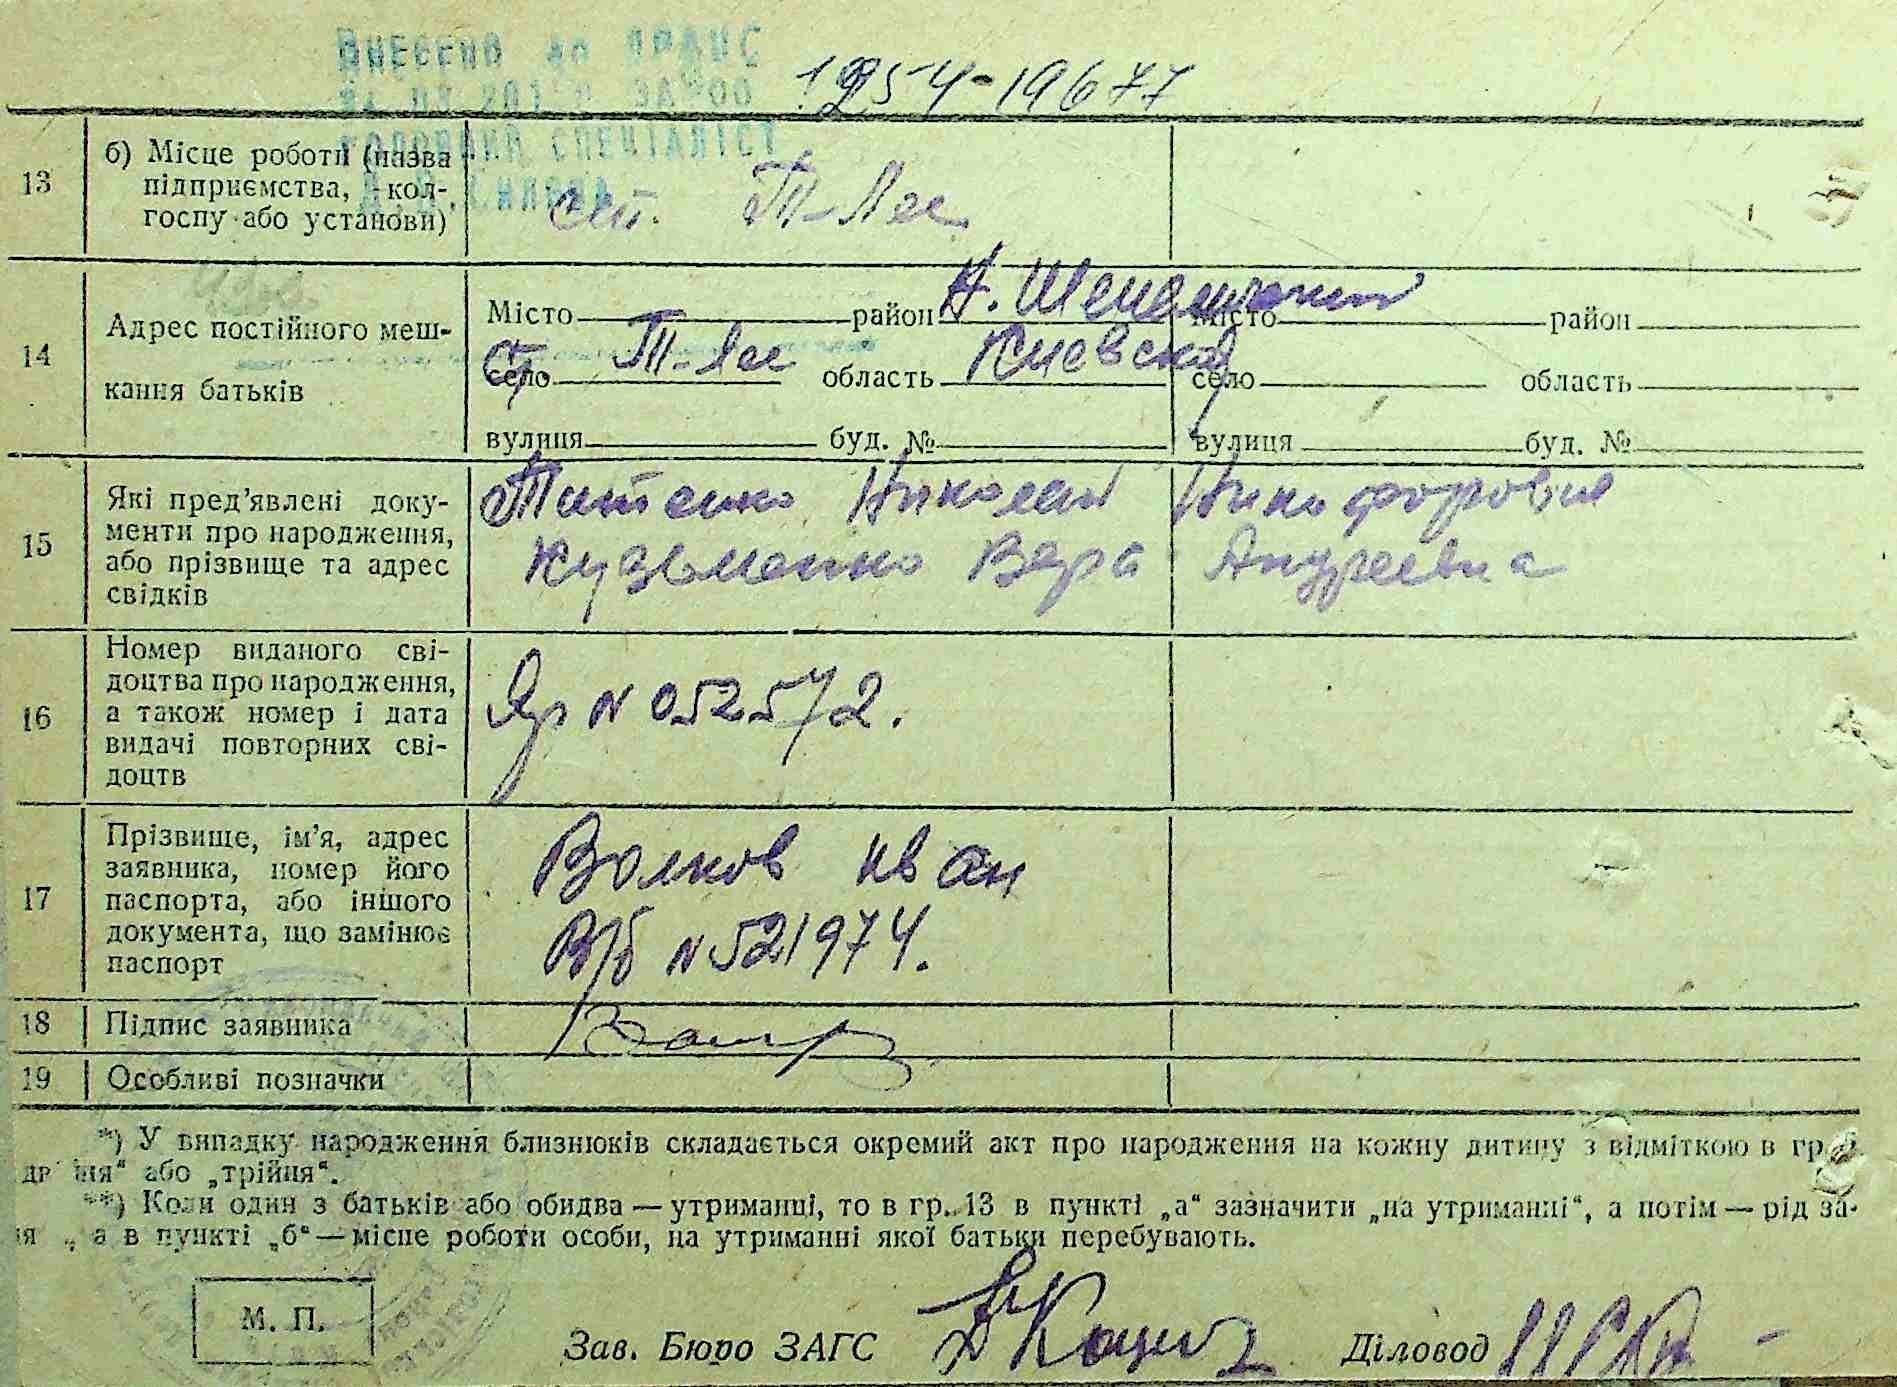 ВНЕСЕНО до ДРАЦС
ГОЛОВНИЙ СПЕЦІАЛІСТ
1954-19677
13
б) Місце роботи (назва
підприємства, кол-
госпу або установи)
ст. Т-Лес
14
Адрес постійного меш-
кання батьків
Місто район Н. Шепеличский Місто район
село ст. Т-Лес область Киевской село область
вулиця буд. № вулиця буд. №
15
Які пред’явлені доку-
менти про народження,
або прізвище та адрес
свідків
Титенко Николай Никифорович
Кузьменко Вера Андреевна
16
Номер виданого сві-
доцтва про народження,
а також номер і дата
видачі повторних сві-
доцтв
Яр N 052572.
17
Прізвище, ім’я, адрес
заявника, номер його
паспорта, або іншого
документа, що замінює
паспорт
Волков Иван
В/б N 521974.
18 Підпис заявника
19 Особливі позначки
*) У випадку народження близнюків складається окремий акт про народження на кожну дитину з відміткою в гр.
або „трійня“.
**) Коли один з батьків або обидва — утриманці, то в гр. 13 в пункті „а“ зазначити „на утриманні“, а потім — рід за-
а в пункті „б“ — місце роботи особи, на утриманні якої батьки перебувають.
М. П.
Зав. Бюро ЗАГС Діловод